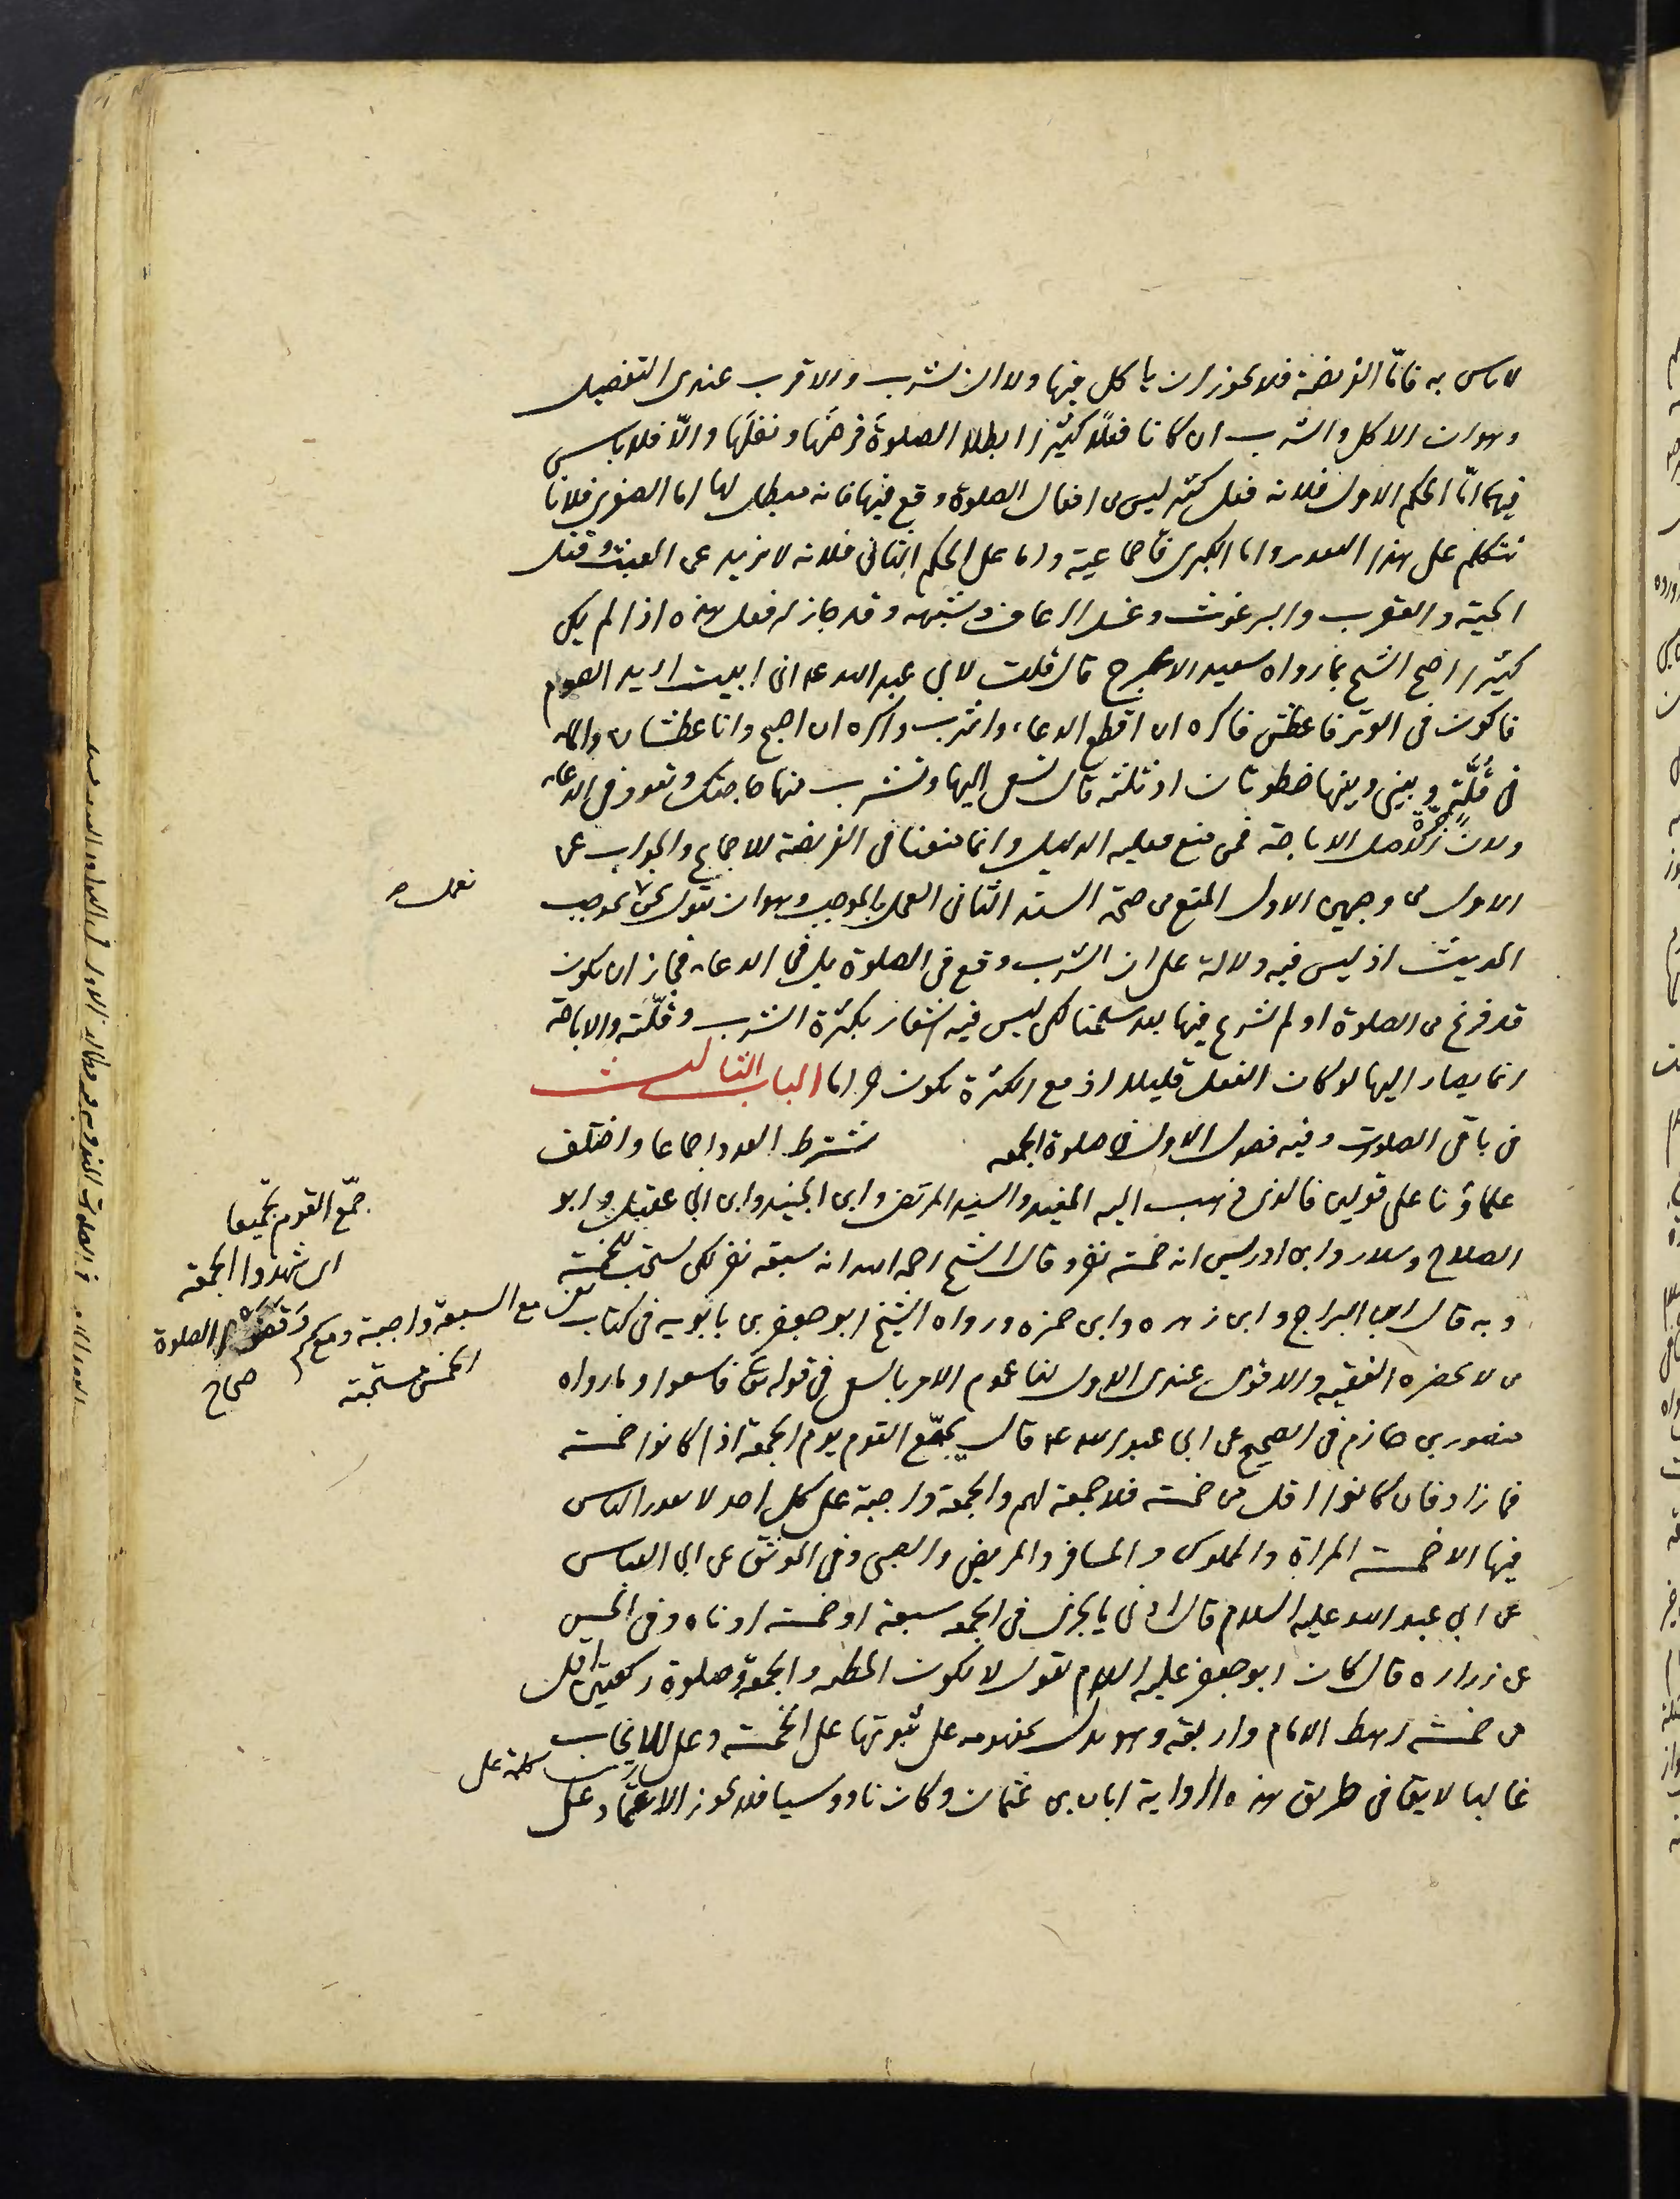 لا باس به فامّا الفريضة فلا يجوز ان ياكل فيها ولا ان يشرب والاقرب عندى التفصيل
وهو ان الاكل والشرب ان كانا فعلًا كثيرا ابطلا الصلوةَ فرضَها ونفلَها والّا فلا باس
فيهما امّا الحكم الاول فلانه فعل كثير ليس من افعال الصلوة وقع فيها فانه مبطل لها اما الصغرى فلانا
نتكلم على هذا التقدير واما الكبرى فاجماعية واما على الحكم الثانى فلانه لا يزيد عن العبث وقتل
الحية والعقرب والبرغوث وغسل الرعاف وشبهه وقد جاز له فعل هذه اذا لم يكن
كثيرا احتج الشيخ بما رواه سعيد الاعرج قال قلت لابى عبد الله ع انى ابيت اريد الصوم
فاكون فى الوتر فاعطش فاكره ان اقطع الدعاء واشرب واكره ان اصبح وانا عطشان والماء
فى قُلَّةٍ وبينى وبينها خطوتان او ثلثه قال تسعى اليها وتشرب منها حاجتك وتعود فى الدعاء
ولان الاصل الاباحة فمن منع فعليه الدليل وانما منعنا فى الفريضة للاجماع والجواب عن
الاول من وجهين الاول المنع من صحة السند الثانى العمل بالموجب وهو ان نقول نحن بموجب
نعمل ص
الحديث اذ ليس فيه دلالة على ان الشرب وقع فى الصلوة بل فى الدعاء فجاز ان يكون
قد فرغ من الصلوة او لم يشرع فيها بعد سلمنا لكن ليس فيه اشعار بكثرة الشرب وقلّته والاباحة
انما يصار اليها لو كان الفعل قليلا اذ مع الكثرة يكون حراما الباب الثالث
فى باقى الصلوت وفيه فصول الاول فى صلوة الجمعه يشترط العدد اجماعا واختلف
علماؤنا على قولين فالذى ذهب اليه المفيد والسيد المرتضى وابن الجنيد وابن ابى عقيل وابو
الصلاح وسلار وابن ادريس انه خمسه نفر وقال الشيخ رحمه الله انه سبعه نفر لكن يستحب للخمسة
وبه قال ابن البراج وابن زهره وابن حمزه ورواه الشيخ ابو جعفر بن بابويه فى كتاب
من لا يحضره الفقيه والاقوى عندى الاول لنا عموم الامر بالسعى فى قوله تعالى فاسعوا وما رواه
منصور بن حازم فى الصحيح عن ابى عبد الله ع قال يجمّع القوم يوم الجمعة اذا كانوا خمسه
فما زاد فان كانوا اقل من خمسه فلا جمعة لهم والجمعة واجبة على كل احد لا يعذر الناس
فيها الا خمسه المراة والمملوك والمسافر والمريض والصبى وفى الموثق عن ابى العباس
عن ابى عبد الله عليه السلام قال ادنى ما يجزى فى الجمعه سبعة او خمسه ادناه وفى الحسن
عن زراره قال كان ابو جعفر عليه السلام يقول لا تكون الخطبه والجمعة وصلوة ركعتين على اقل
من خمسه رهط الامام واربعه وهو يدل بمفهومه على ثبوتها على الخمسه وعلى للايجاب
غالبا لا يقا فى طريق هذه الرواية ابان بن عثمان وكان ناووسيا فلا يجوز الاعتماد على
كلمة على
جمّع القوم تجميعا
اى شهدوا الجمعة
وقضوا الصلوة
صحاح
مع السبعة واجبة ومع
الخمس مستحبة